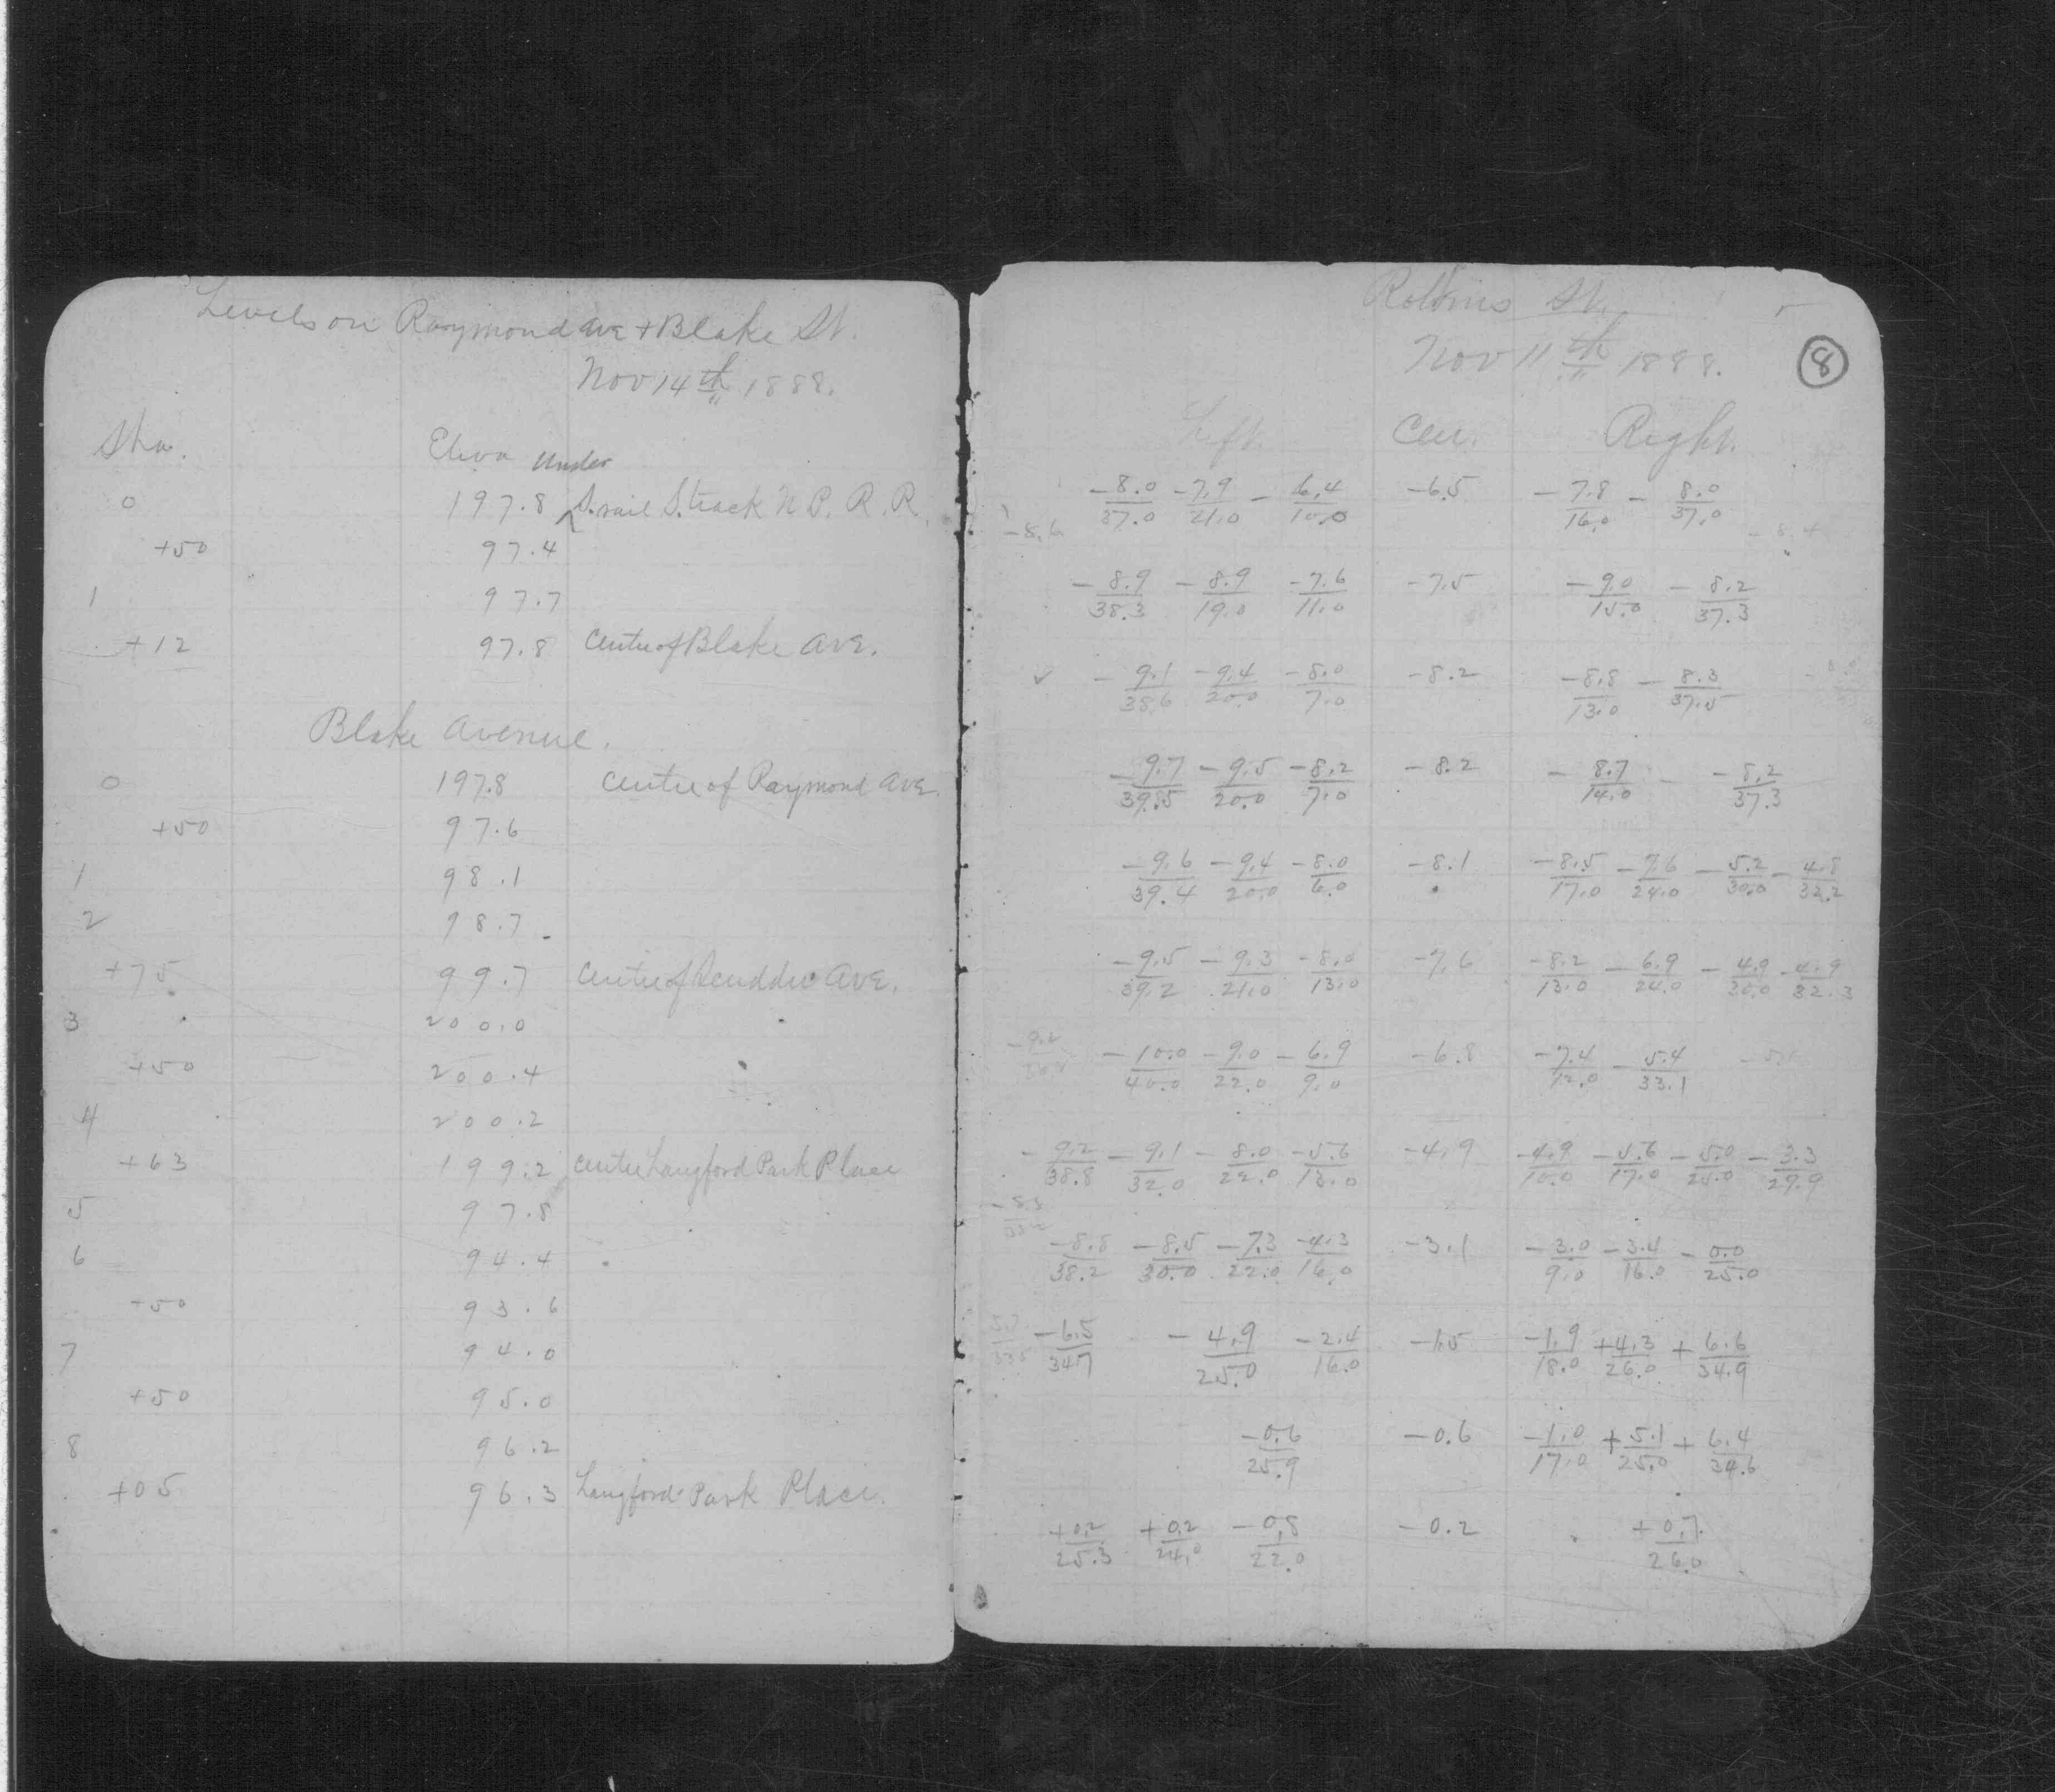 Levels on Raymond ave + Blake St.
Nov 14th 1888.
Sta. Eleva
under
0 197.8 S. rail S. track N. P. R. R.
+50 97.4
1 97.7
+12 97.8 Centre of Blake ave.
Blake Avenue.
0 197.8 Centre of Raymond ave.
+50 97.6
1 98.1
2 98.7
+75 99.7 Centre of Scudder ave.
3 200.0
+50 200.4
4 200.2
+63 199.2 Centre Langford Park Place
5 97.8
6 94.4
+50 93.6
7 94.0
+50 95.0
8 96.2
+05 96.3 Langford Park Place.
St.
Nov 11th 1888.
8
Left. Cen. Right.
-8.0/37.0 -7.9/21.0 -6.4/10.0 -6.5 -7.8/16.0 -8.0/37.0
-8.6 -8.4
-8.9/38.3 -8.9/19.0 -7.6/11.0 -7.5 -9.0/15.0 -8.2/37.3
-9.1/38.6 -9.4/20.0 -8.0/7.0 -8.2 -8.8/13.0 -8.3/37.5
-9.7/39.5 -9.5/20.0 -8.2/7.0 -8.2 -8.7/14.0 -8.2/37.3
-9.6/39.4 -9.4/20.0 -8.0/6.0 -8.1 -8.5/17.0 -7.6/24.0 -5.2/30.0 -4.8/32.2
-9.5/39.2 -9.3/21.0 -8.0/13.0 -7.6 -8.2/13.0 -6.9/24.0 -4.9/30.0 -4.9/32.3
-10.0/40.0 -9.0/22.0 -6.9/9.0 -6.8 -7.4/12.0 -5.4/33.1
-9.2/38.8 -9.1/32.0 -8.0/22.0 -5.6/13.0 -4.9 -4.9/10.0 -5.6/17.0 -5.0/25.0 -3.3/29.9
-8.8/38.2 -8.5/30.0 -7.3/22.0 -4.3/16.0 -3.1 -3.0/9.0 -3.4/16.0 -0.0/25.0
-6.5/34.7 -4.9/25.0 -2.4/16.0 -1.5 -1.9/18.0 +4.3/26.0 +6.6/34.9
-0.6/25.9 -0.6 -1.0/17.0 +5.1/25.0 +6.4/34.6
+0.2/25.3 +0.2/24.0 -0.8/22.0 -0.2 +0.7/26.0